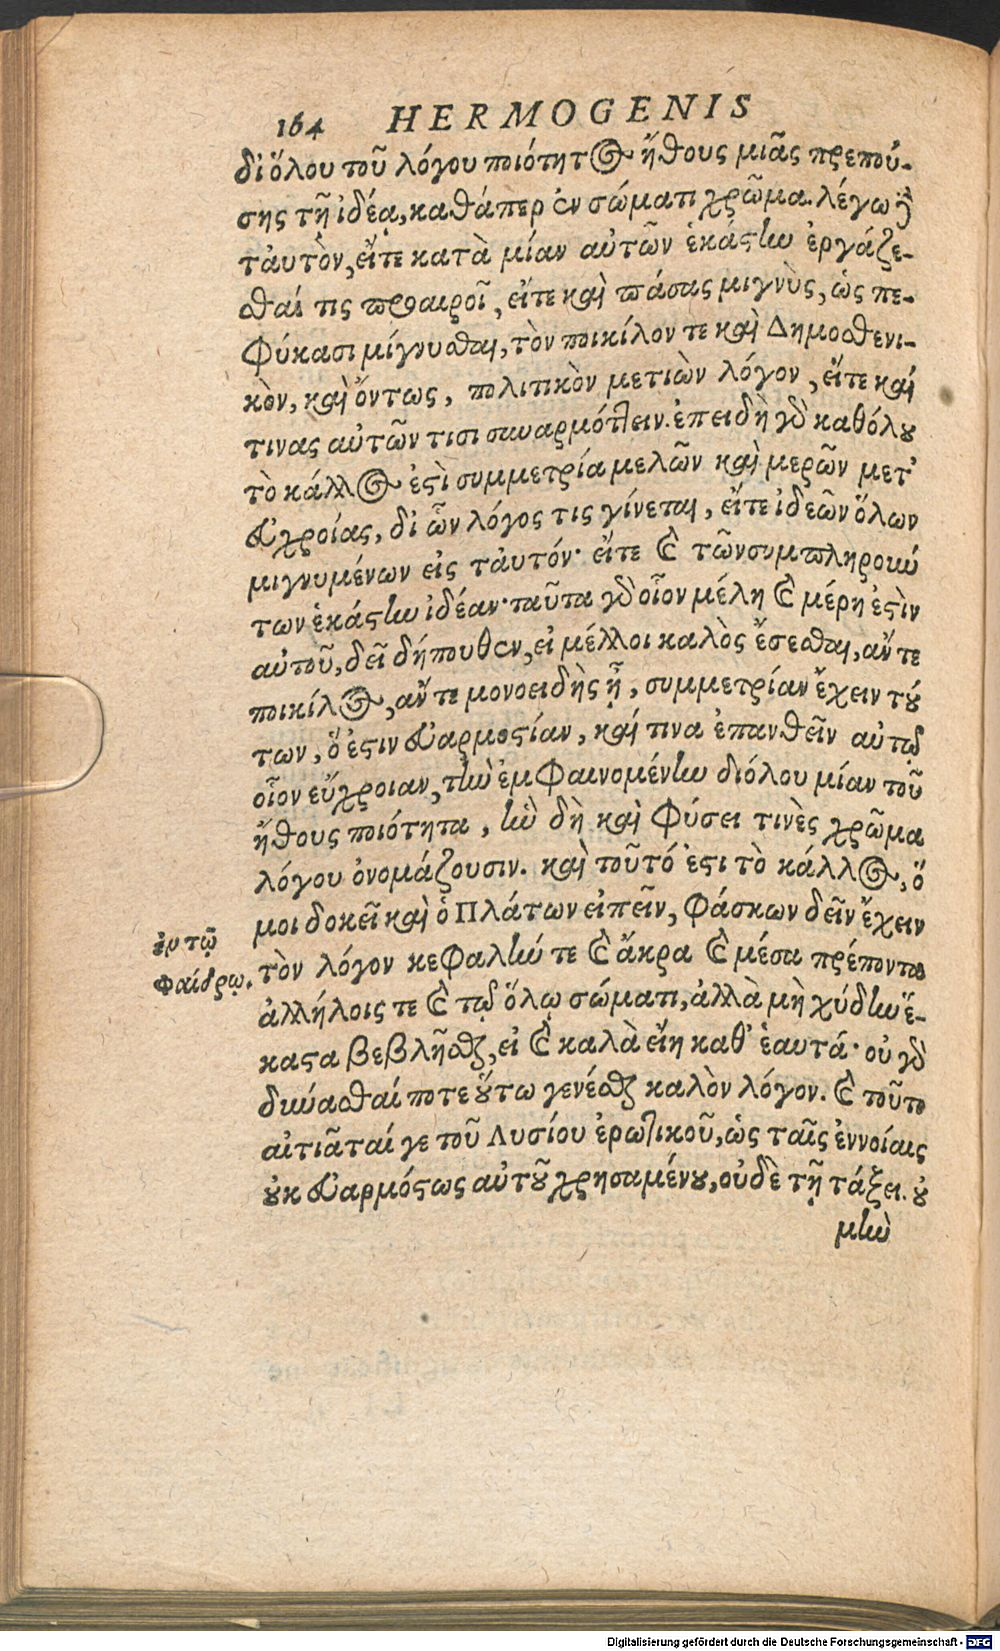 164 HERMOGENIS
δι ὅλου τοῦ λόγου ποιότητος ἤθους μιᾶς πρεπού-
σης τῇ ἰδέᾳ, καθάπερ ἐν σώματι χρῶμα. λέγω δὲ
ταυτὸν, εἴτε κατὰ μίαν αὐτῶν ἑκάστην ἐργάζε-
σθαί τις προαιροῖ, εἴτε καὶ πάσας μιγνὺς, ὡς πε-
φύκασι μίγνυσθαι, τὸν ποικίλον τε καὶ Δημοσθενι-
κὸν, καὶ ὄντως, πολιτικὸν μετιὼν λόγον, εἴτε καί
τινας αὐτῶν τισι συναρμόττειν. ἐπειδὴ γὰρ καθόλου
τὸ κάλλος ἐστὶ συμμετρία μελῶν καὶ μερῶν μετ'
εὐχροίας, δι ὧν λόγος τις γίνεται, εἴτε ἰδεῶν ὅλων
μιγνυμένων εἰς ταυτόν· εἴτε καὶ τῶν συμπληρούν
των ἑκάστην ἰδέαν· ταῦτα γὰρ οἷον μέλη καὶ μέρη ἐστὶν
αὐτοῦ, δεῖ δήπουθεν, εἰ μέλλοι καλὸς ἔσεσθαι, ἄν τε
ποικίλος, ἄν τε μονοειδὴς ᾖ, συμμετρίαν ἔχειν τού
των, ὅ ἐστιν εὐαρμοστίαν, καί τινα ἐπανθεῖν αὐτῷ
οἷον εὔχροιαν, τὴν ἐμφαινομένην διόλου μίαν τοῦ
ἤθους ποιότητα, ἣν δὴ καὶ φύσει τινὲς χρῶμα
λόγου ὀνομάζουσιν. καὶ τοῦτό ἐστι τὸ κάλλος, ὅ
μοι δοκεῖ καὶ ὁ Πλάτων εἰπεῖν, φάσκων δεῖν ἔχειν
ἐν τῷ
Φαίδρῳ.
τὸν λόγον κεφαλήν τε καὶ ἄκρα καὶ μέσα πρέποντα
ἀλλήλοις τε καὶ τῷ ὅλῳ σώματι, ἀλλὰ μὴ χύδην ἕ-
καστα βεβλῆσθαι, εἰ καὶ καλὰ εἴη καθ' ἑαυτά· οὐ γὰρ
δύνασθαί ποτε οὕτω γενέσθαι καλὸν λόγον. καὶ τοῦτο
αἰτιᾶταί γε τοῦ Λυσίου ἐρωτικοῦ, ὡς ταῖς ἐννοίαις
οὐκ εὐαρμόστως αὐτοῦ χρησαμένου, οὐδὲ τῇ τάξει. οὐ
μὴν
Digitalisierung gefördert durch die Deutsche Forschungsgemeinschaft - DFG